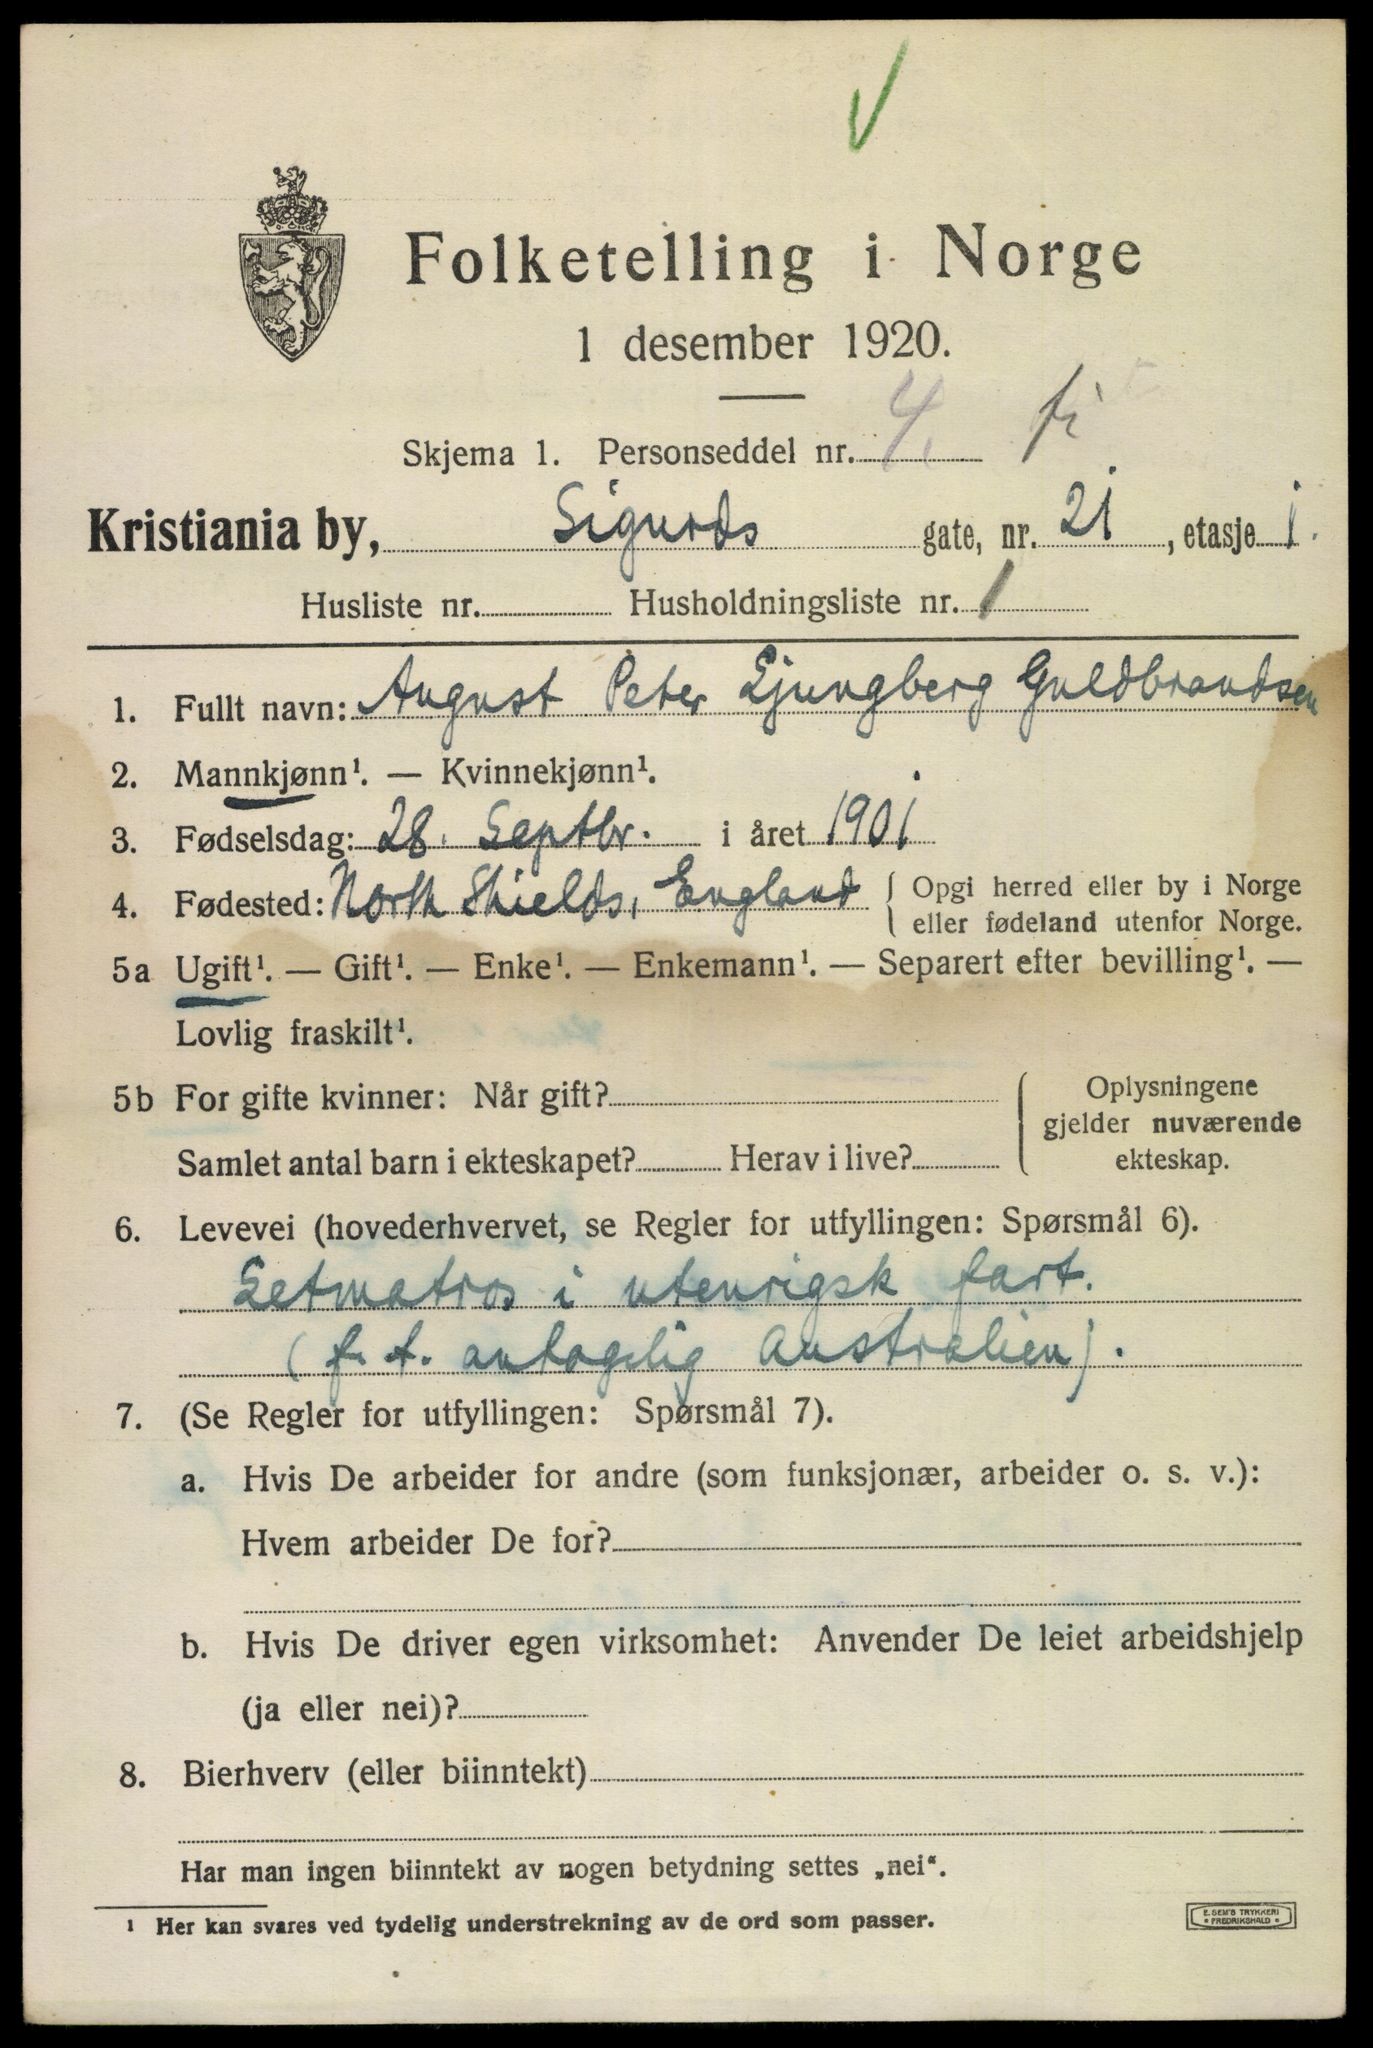 Folketelling i Norge
1 desember 1920.
Skjema 1. Personseddel nr. 4.
Kristiania by, Sigurds gate, nr. 21, etasje 1.
Husliste nr. Husholdningsliste nr. 1
1. Fullt navn: August Peter Ljungberg Guldbrandsen
2. Mannkjønn¹. — Kvinnekjønn¹.
3. Fødselsdag: 28. Septbr. i året 1901
4. Fødested: North Shields, England { Opgi herred eller by i Norge
eller fødeland utenfor Norge.
5a Ugift¹. — Gift¹. — Enke¹. — Enkemann¹. — Separert efter bevilling¹. —
Lovlig fraskilt¹.
5b For gifte kvinner: Når gift?
Samlet antal barn i ekteskapet? Herav i live?
{ Oplysningene
gjelder nuværende
ekteskap.
6. Levevei (hovederhvervet, se Regler for utfyllingen: Spørsmål 6).
Letmatros i utenrigsk fart.
(f. t. antagelig Australien).
7. (Se Regler for utfyllingen: Spørsmål 7).
a. Hvis De arbeider for andre (som funksjonær, arbeider o. s. v.):
Hvem arbeider De for?
b. Hvis De driver egen virksomhet: Anvender De leiet arbeidshjelp
(ja eller nei)?
8. Bierhverv (eller biinntekt)
Har man ingen biinntekt av nogen betydning settes „nei“.
¹ Her kan svares ved tydelig understrekning av de ord som passer.
E. SEM'S TRYKKERI
• FREDRIKSHALD •